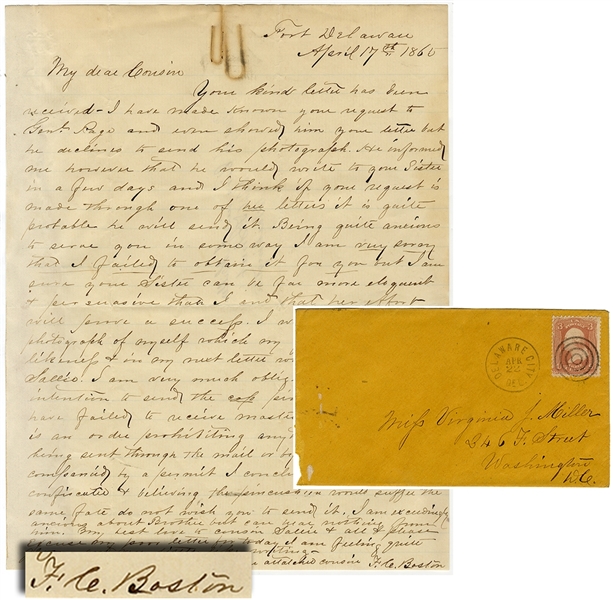 Fort Delaware
April 17th 1865
My dear Cousin
Your kind letter has been
received - I have made known your request to
Genl Page and even showed him your letter but
he declines to send his photograph. He informed
me however that he would write to your Sister
in a few days and I think if your request is
made through one of her letters it is quite
probable he will send it. Being quite anxious
to serve you in some way I am very sorry
that I failed to obtain it for you but I am
sure your Sister can be far more eloquent
& persuasive than I and that her effort
will prove a success. I
photograph of myself which my
likeness & in my next letter
Sallie. I am very much oblig
intention to send the
have failed to receive
is an order prohibiting any
being sent through the mail or
companied by a permit I
confiscated & believing the would suffer the
same fate do not wish you to send it. I am exceedingly
anxious about Brother but can hear nothing from
him. My best love to cousin Sallie & all & please
letter for today I am feeling quite
writing -
attached cousin F. C. Boston
DELAWARE CITY
APR
22
DEL.
Miss Virginia J. Miller
246 F. Street
Washington
D.C.
F. C. Boston